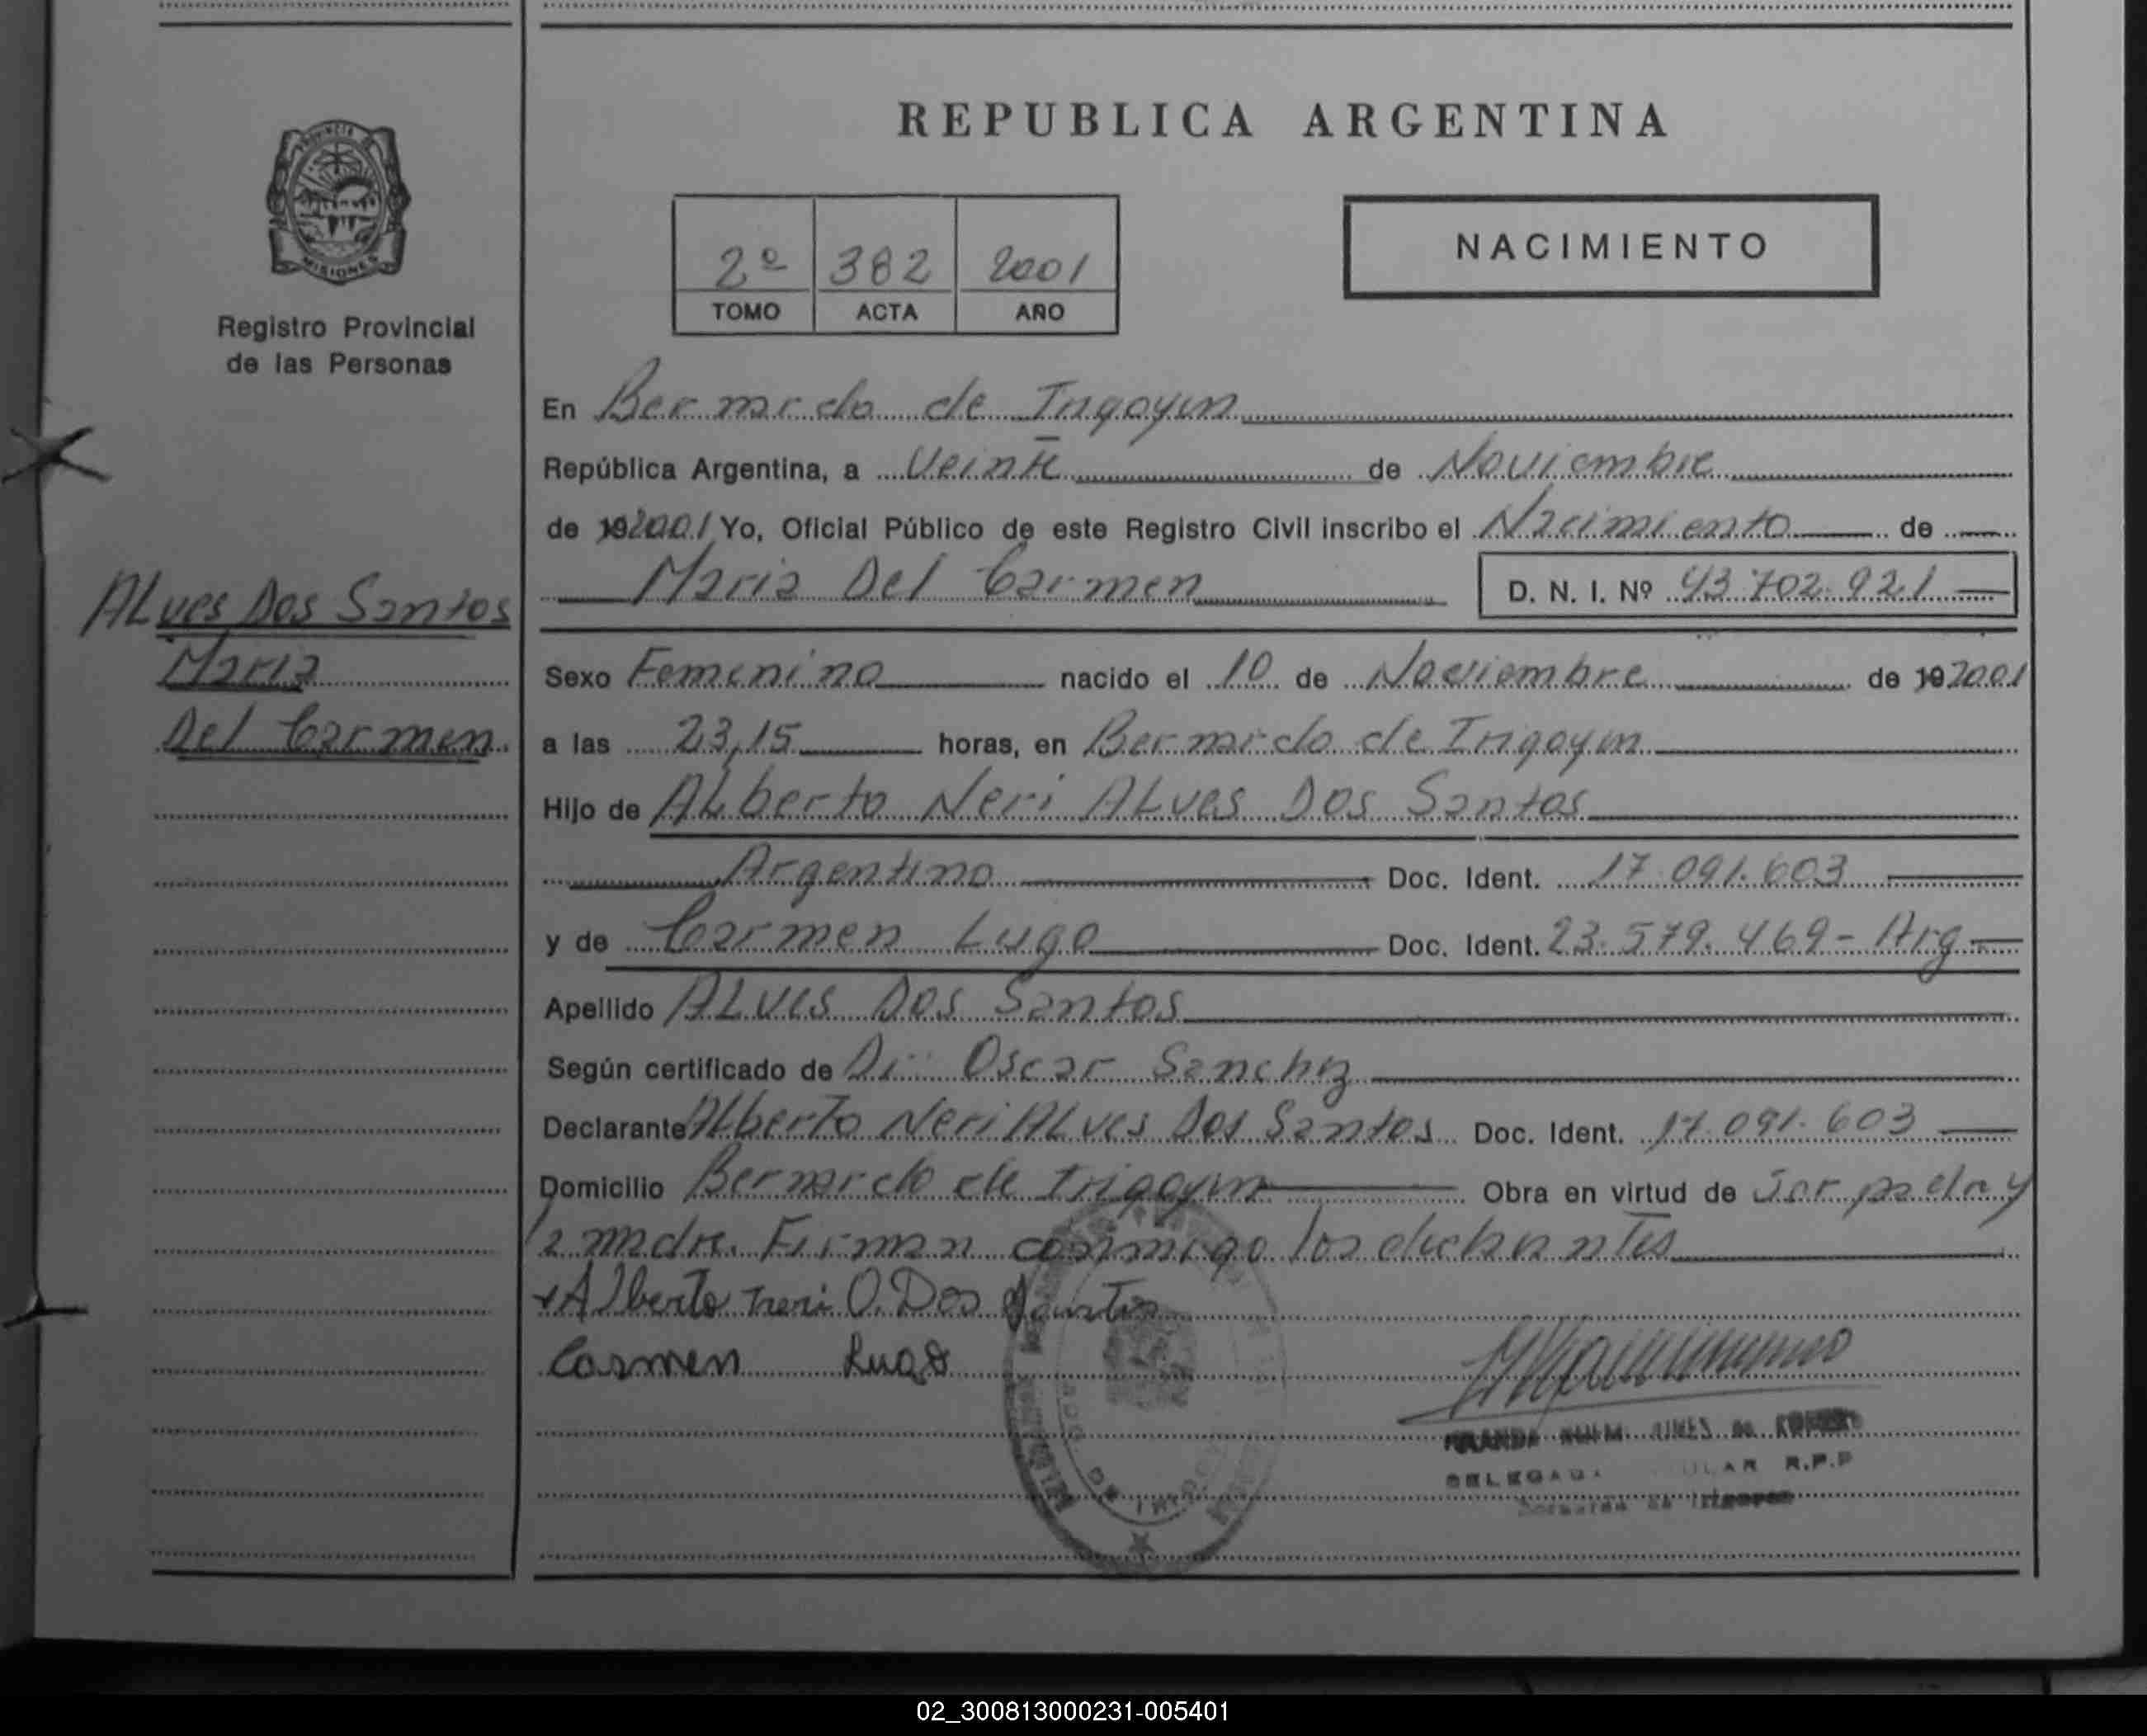 REPUBLICA ARGENTINA
PROVINCIA
MISIONES
Registro Provincial
de las Personas
2º 382 2001
TOMO ACTA AÑO
NACIMIENTO
En Bernardo de Irigoyen
República Argentina, a Veinte de Noviembre
de 192001 Yo, Oficial Público de este Registro Civil inscribo el Nacimiento de
Maria Del Carmen D. N. I. Nº 43.702.921
ALves Dos Santos
Maria
Del Carmen
Sexo Femenino nacido el 10 de Noviembre de 192001
a las 23,15 horas, en Bernardo de Irigoyen
Hijo de ALberto Neri ALves Dos Santos
Argentino Doc. Ident. 17.091.603
y de Carmen Lugo Doc. Ident. 23.579.469- Arg
Apellido ALves Dos Santos
Según certificado de Dr. Oscar Sanchez
Declarante Alberto Neri ALves Dos Santos Doc. Ident. 17.091.603
Domicilio Bernardo de Irigoyen Obra en virtud de Ser padre y
la madre. Firman conmigo los declarantes
Alberto neri O. Dos Santos
Carmen Lugo
R.P.P